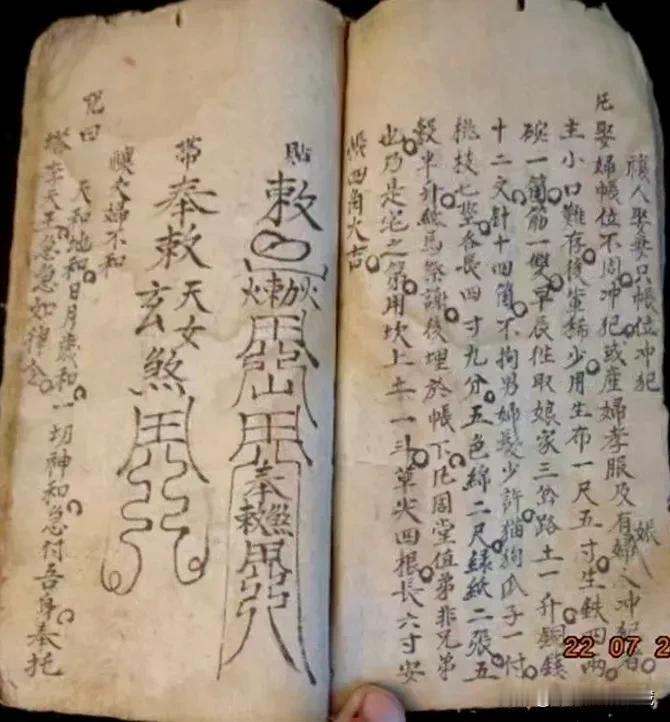 禳人娶妻只帳位冲犯
凡娶婦帳位不周冲犯或産婦孝服及有娠婦人冲犯者
主小口難存後輩稀少用生布一尺五寸生鉄四兩
碗一箇筋一雙早辰徃取娘家三岔路土一升銅錢
十二文針十四箇不拘男婦髮少許猫狗爪子一付
桃枝七莖各長四寸九分五色線二尺緑紙二張五
穀半升紙馬祭謝後埋於帳下凡周堂值弟非兄弟
也乃是宅之祭用坎上土一斗草尖四根長六寸安
帳四角大吉
貼
敕
奉敕煞
帶
奉敕
天女
玄煞
禳夫婦不和
咒曰
天和地和日月歲和一切神和急付吾身奉托
塔李天王急急如律令
22 07 2